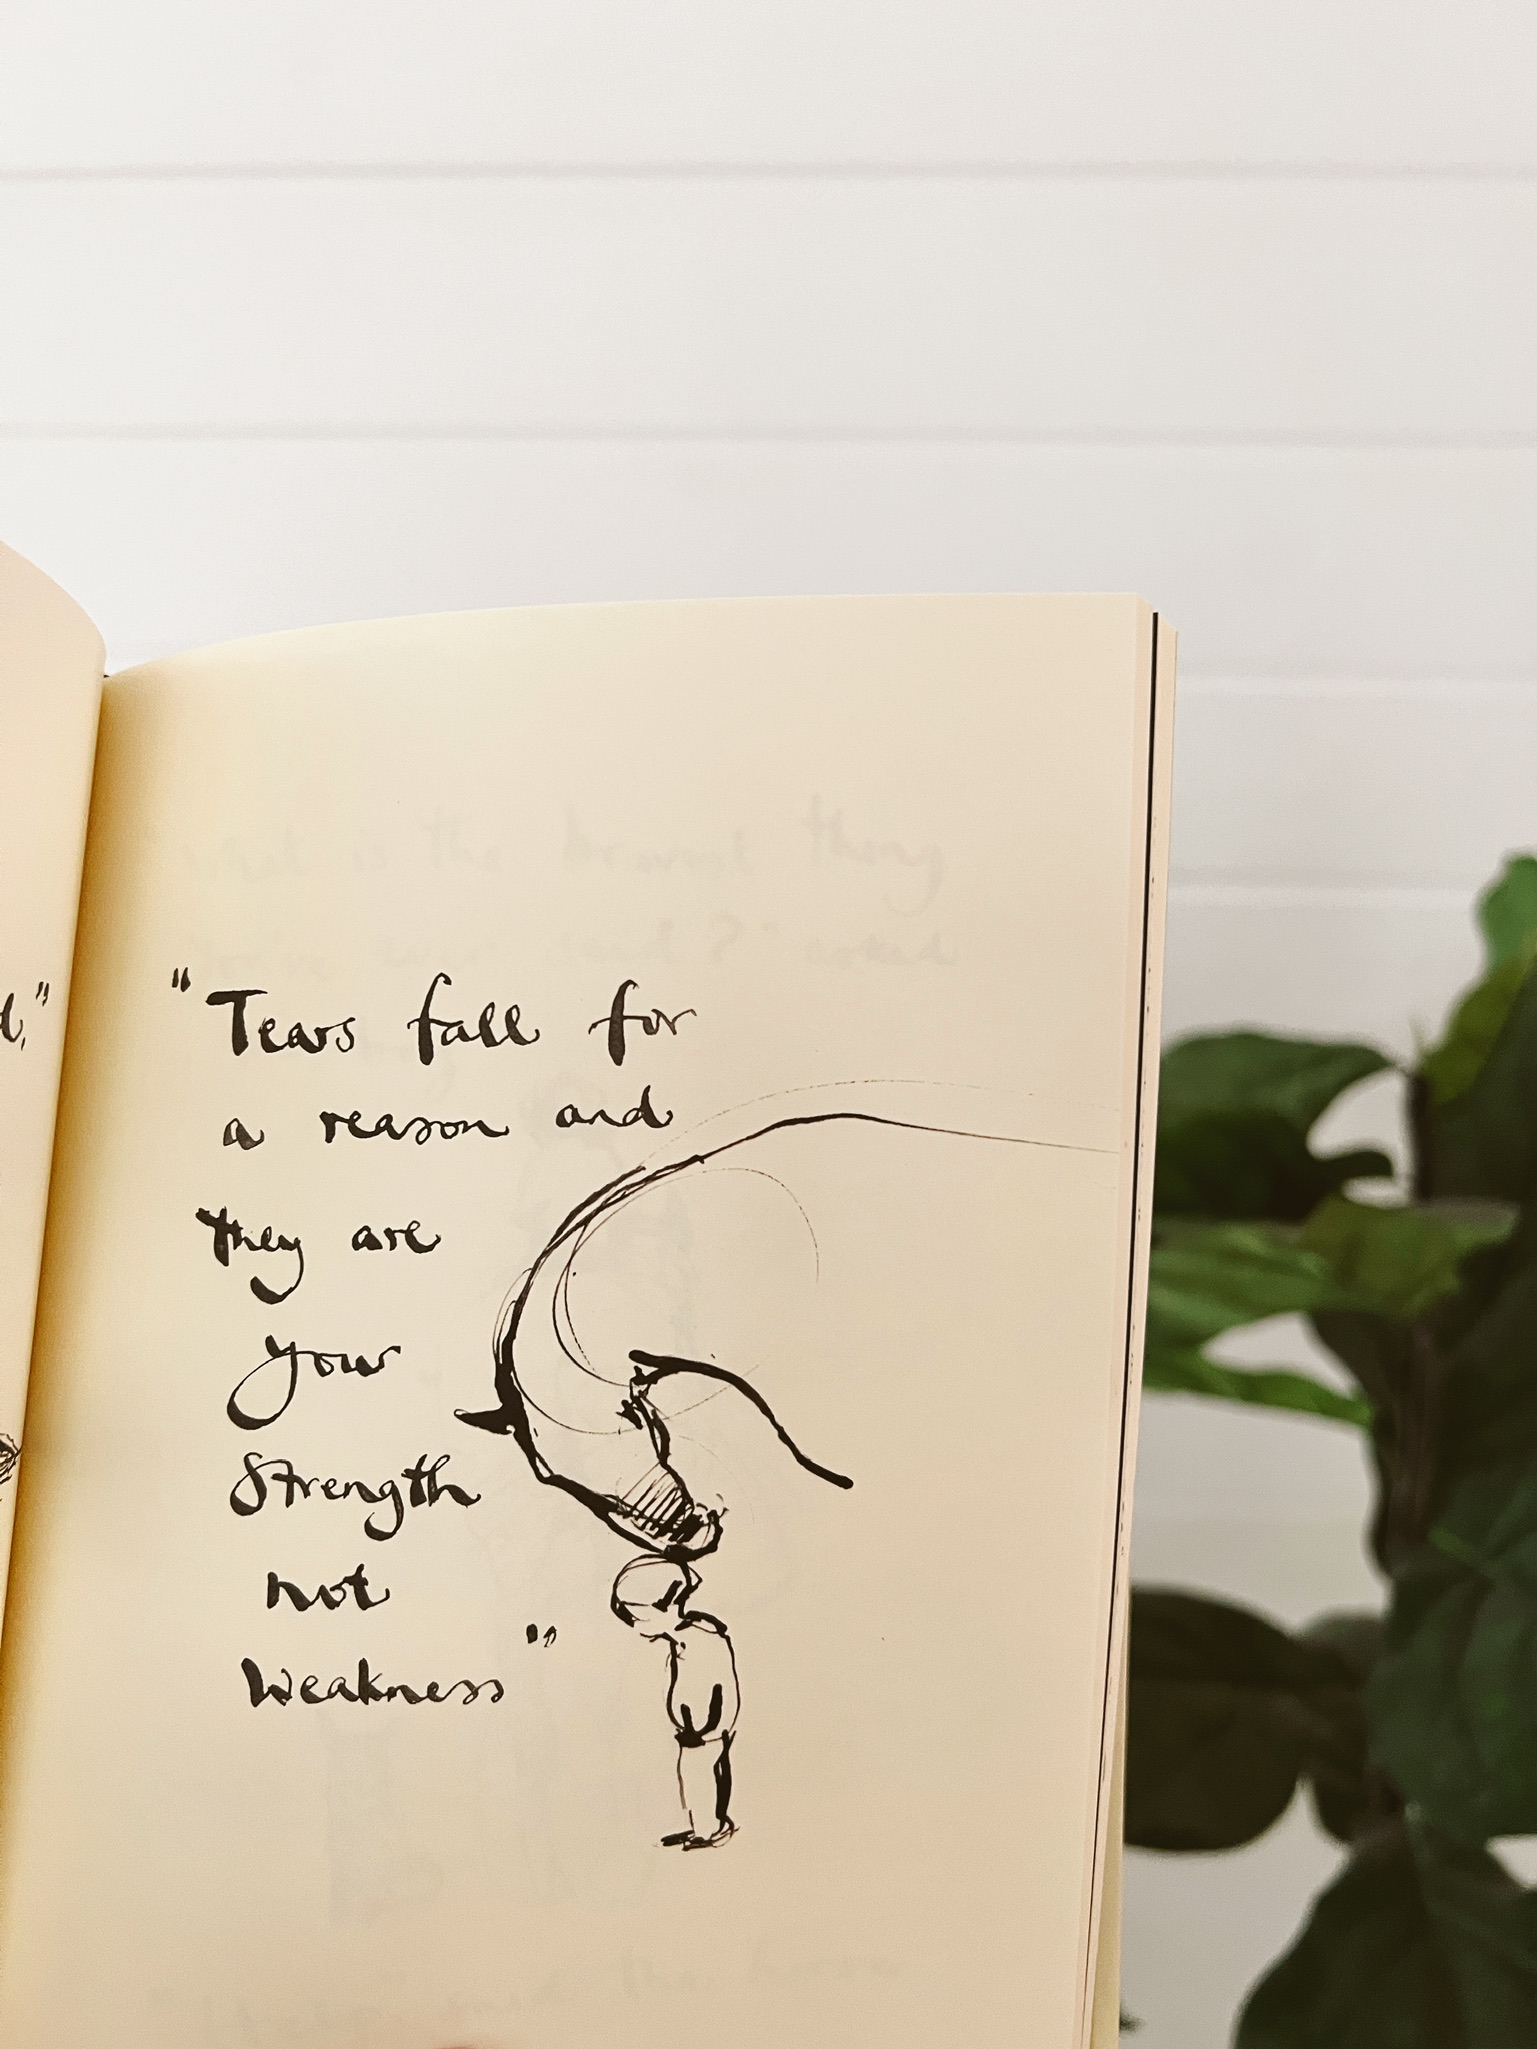 d,"
"Tears fall for
a reason and
they are
your
Strength
not
Weakness"